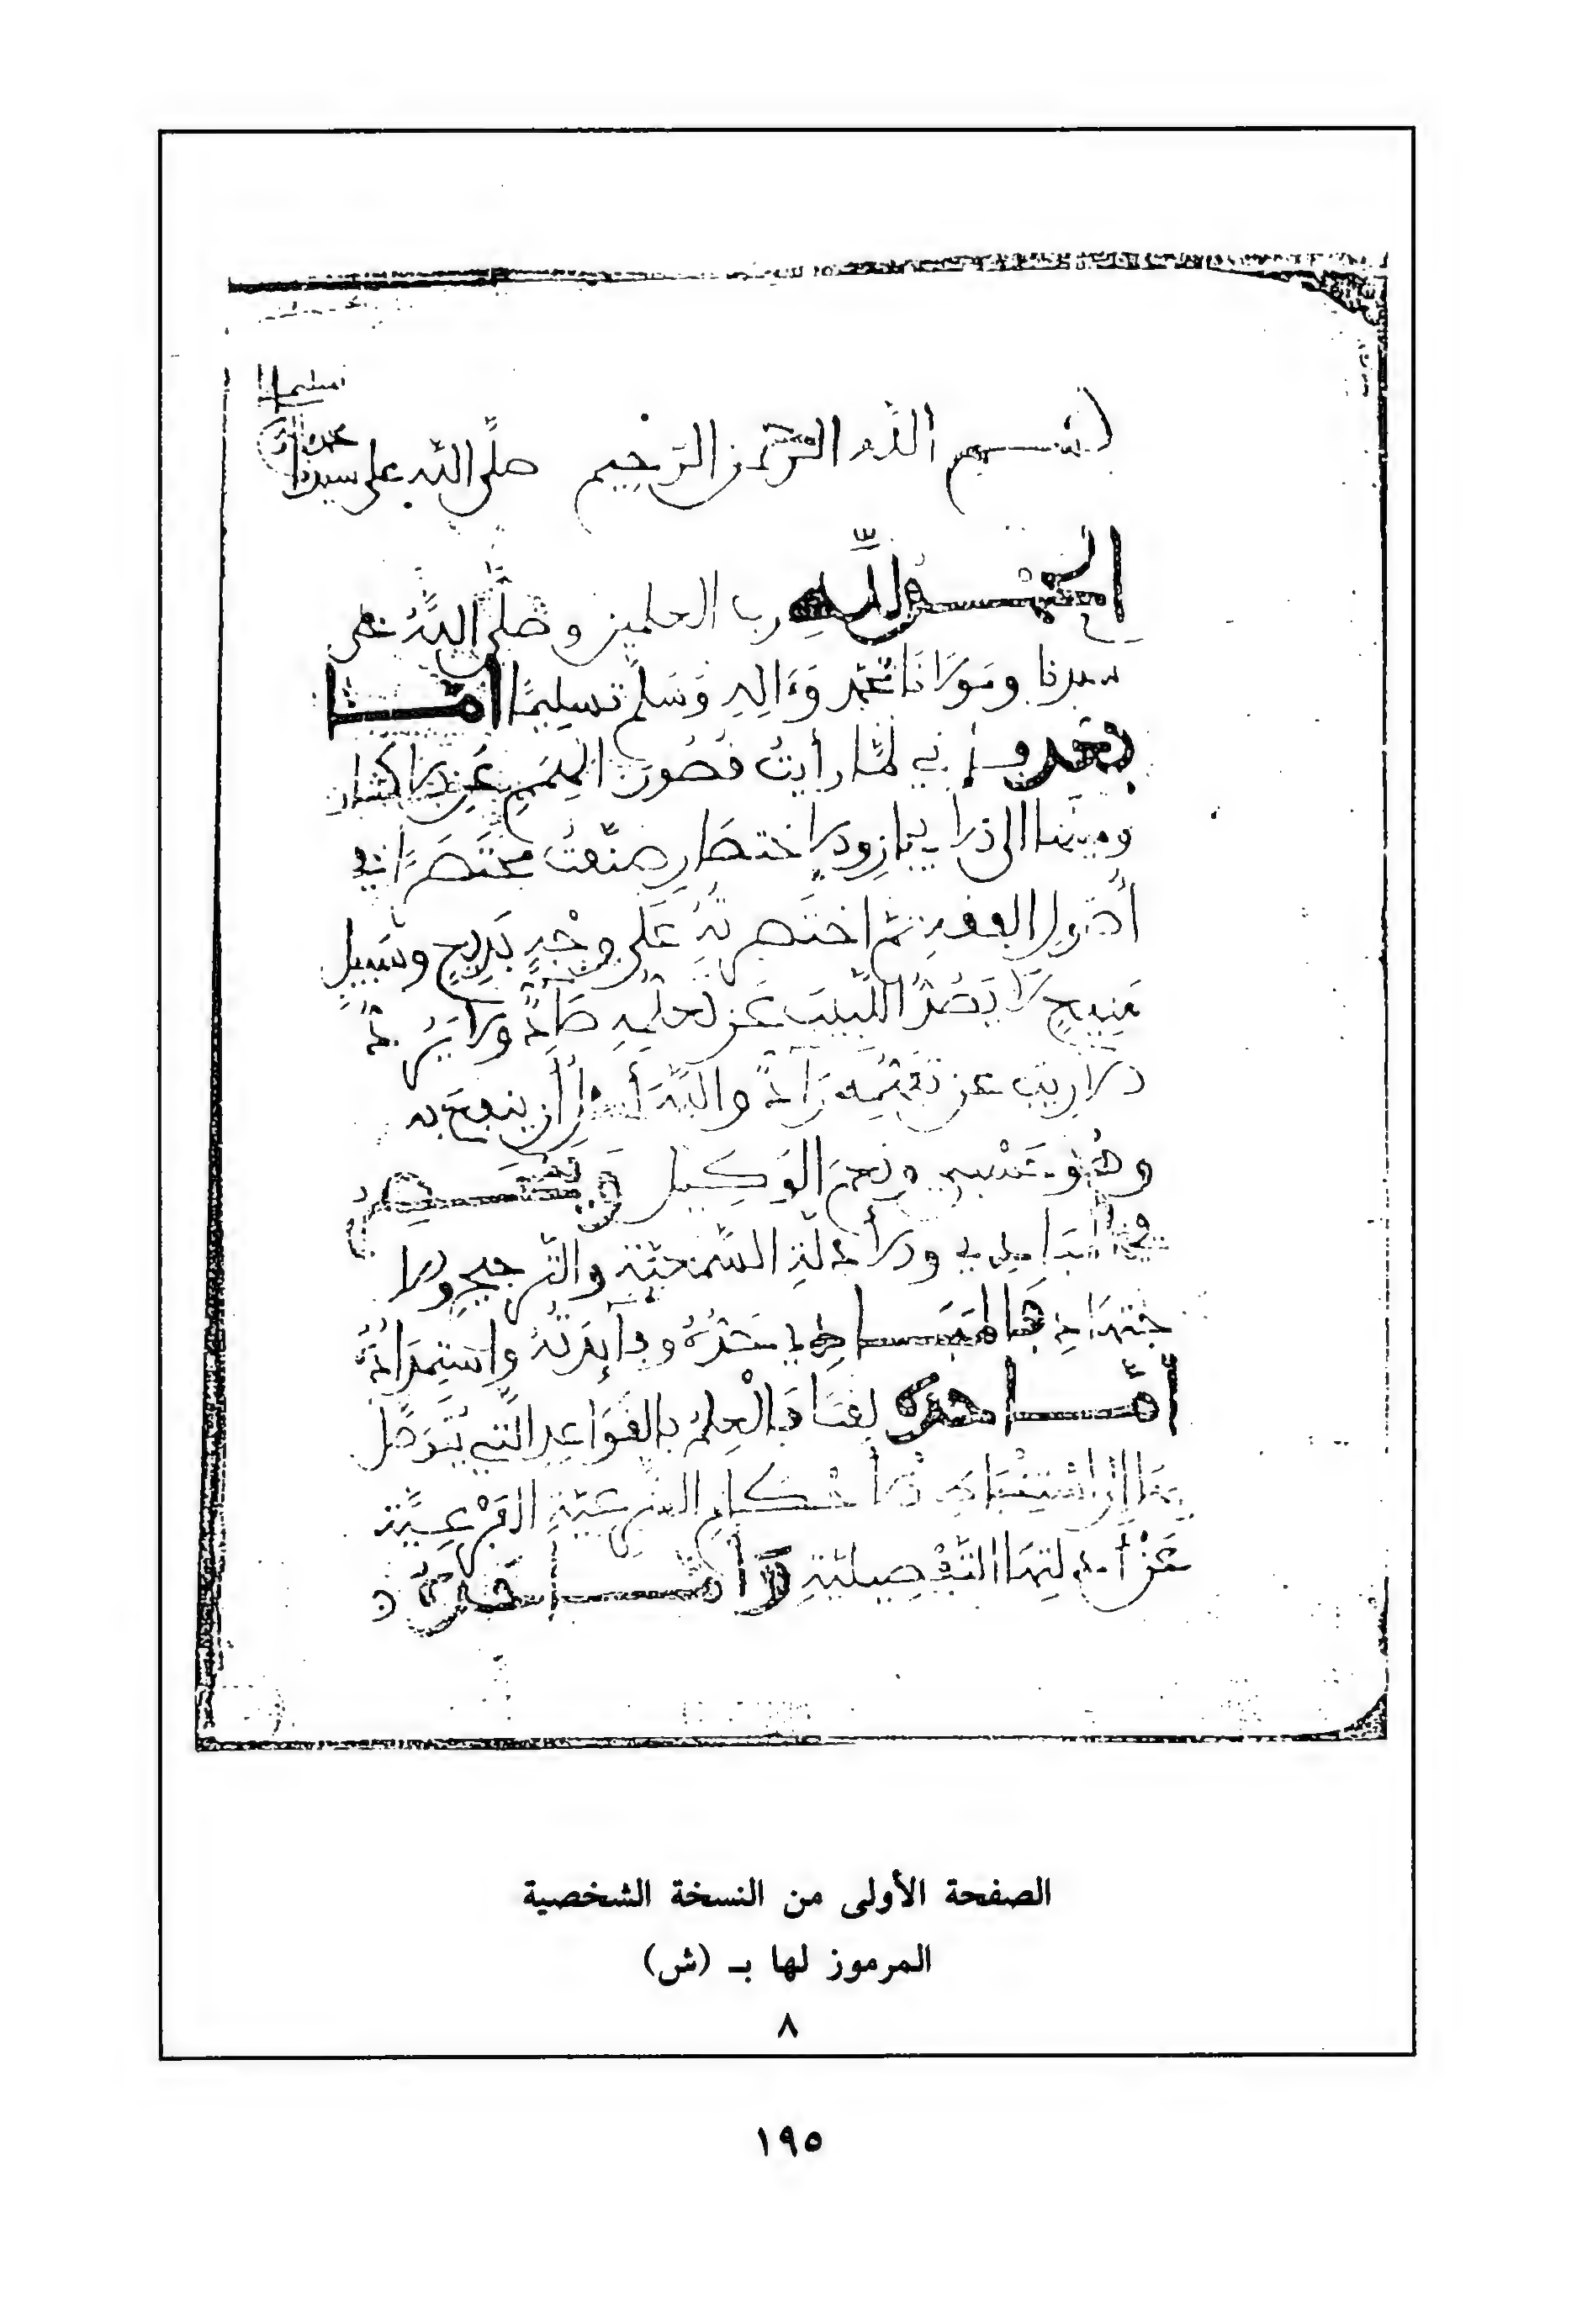 بسم الله الرحمن الرحيم صلى الله على سيدنا
محمد وآله
تسليما
الحمد لله رب العلمين وصلى الله على
سيدنا ومولانا محمد وءاله وسلم تسليما أما
بعد فإني لما رأيت قصور الهمم عن الاكثار
وميلها الى الايجاز والاختصار صنفت مختصرا في
أصول الفقه ثم اختصرته على وجه بديع وسبيل
منيع لا يصد اللبيب عن تعلمه صاد ولا يرد
الاريب عن تفهمه راد والله أسأل أن ينفع به
وهو حسبي ونعم الوكيل وينحصر
في المبادي والأدلة السمعية والترجيح والا
جتهاد فالمبادي حده وفائدته واستمداده
أما حده لقبا فالعلم بالقواعد التي يتوصل
بها إلى استنباط الأحكام الشرعية الفرعية
عن أدلتها التفصيلية وأما حده
الصفحة الأولى من النسخة الشخصية
المرموز لها بـ (ش)
٨
١٩٥